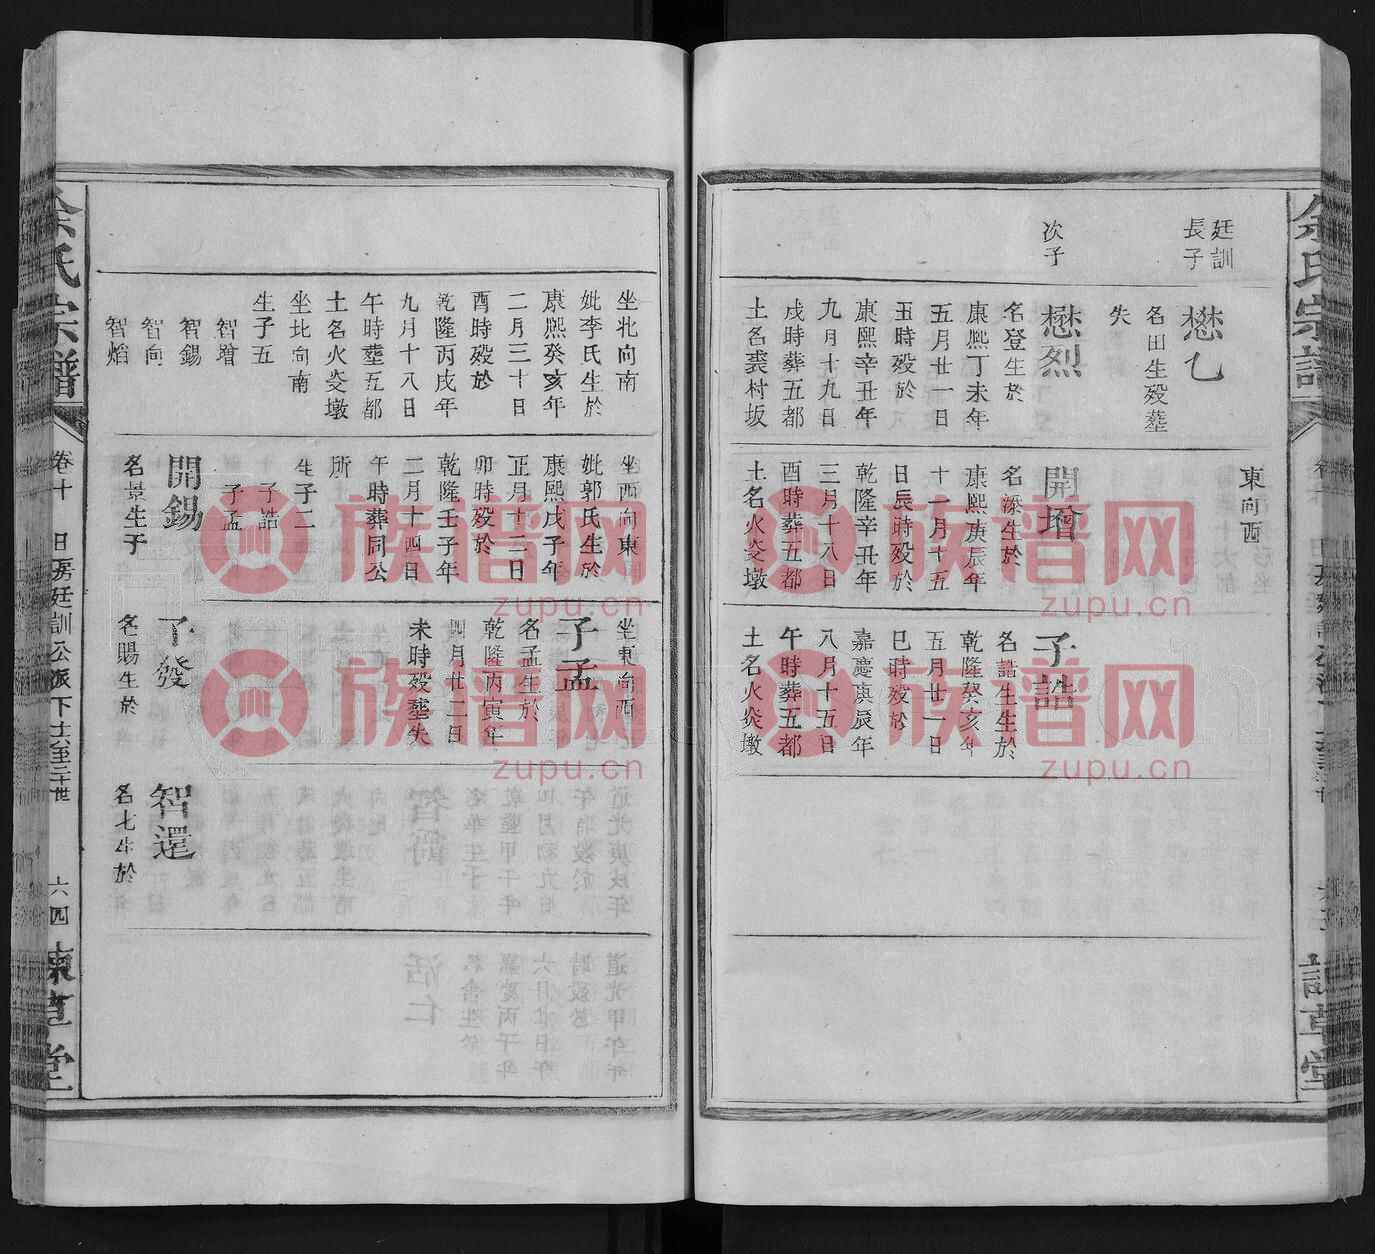 余氏宗譜
廷訓
長子
懋乙
名田生殁塟
失
次子
懋烈
名登生於
康熙丁未年
五月廿一日
丑時殁於
康熙辛丑年
九月十九日
戌時葬五都
土名裘村坂
東向酉
開墦
名溱生於
康熙庚辰年
十一月十五
日辰時殁於
乾隆辛丑年
三月十八日
酉時葬五都
土名火炎墩
子誥
名誥生生於
乾隆癸亥年
五月廿一日
巳時殁於
嘉慶庚辰年
八月十五日
午時葬五都
土名火炎墩
坐北向南
妣李氏生於
康熙癸亥年
二月三十日
酉時殁於
乾隆丙戌年
九月十八日
午時塟五都
土名火炎墩
坐北向南
生子五
智増
智錫
智向
智熖
坐西向東
妣郭氏生於
康熙戊子年
正月十二日
卯時殁於
乾隆壬子年
二月十四日
午時葬同公
所
生子二
子誥
子孟
開錫
名景生于
坐東向西
子孟
名孟生於
乾隆丙寅年
四月廿二日
未時殁塟失
子發
名賜生於
智還
名七生於
余氏宗譜
卷十
房廷訓公派下十六至二十世
六四
堂
族谱网
zupu.cn
族谱网
zupu.cn
族谱网
zupu.cn
族谱网
zupu.cn